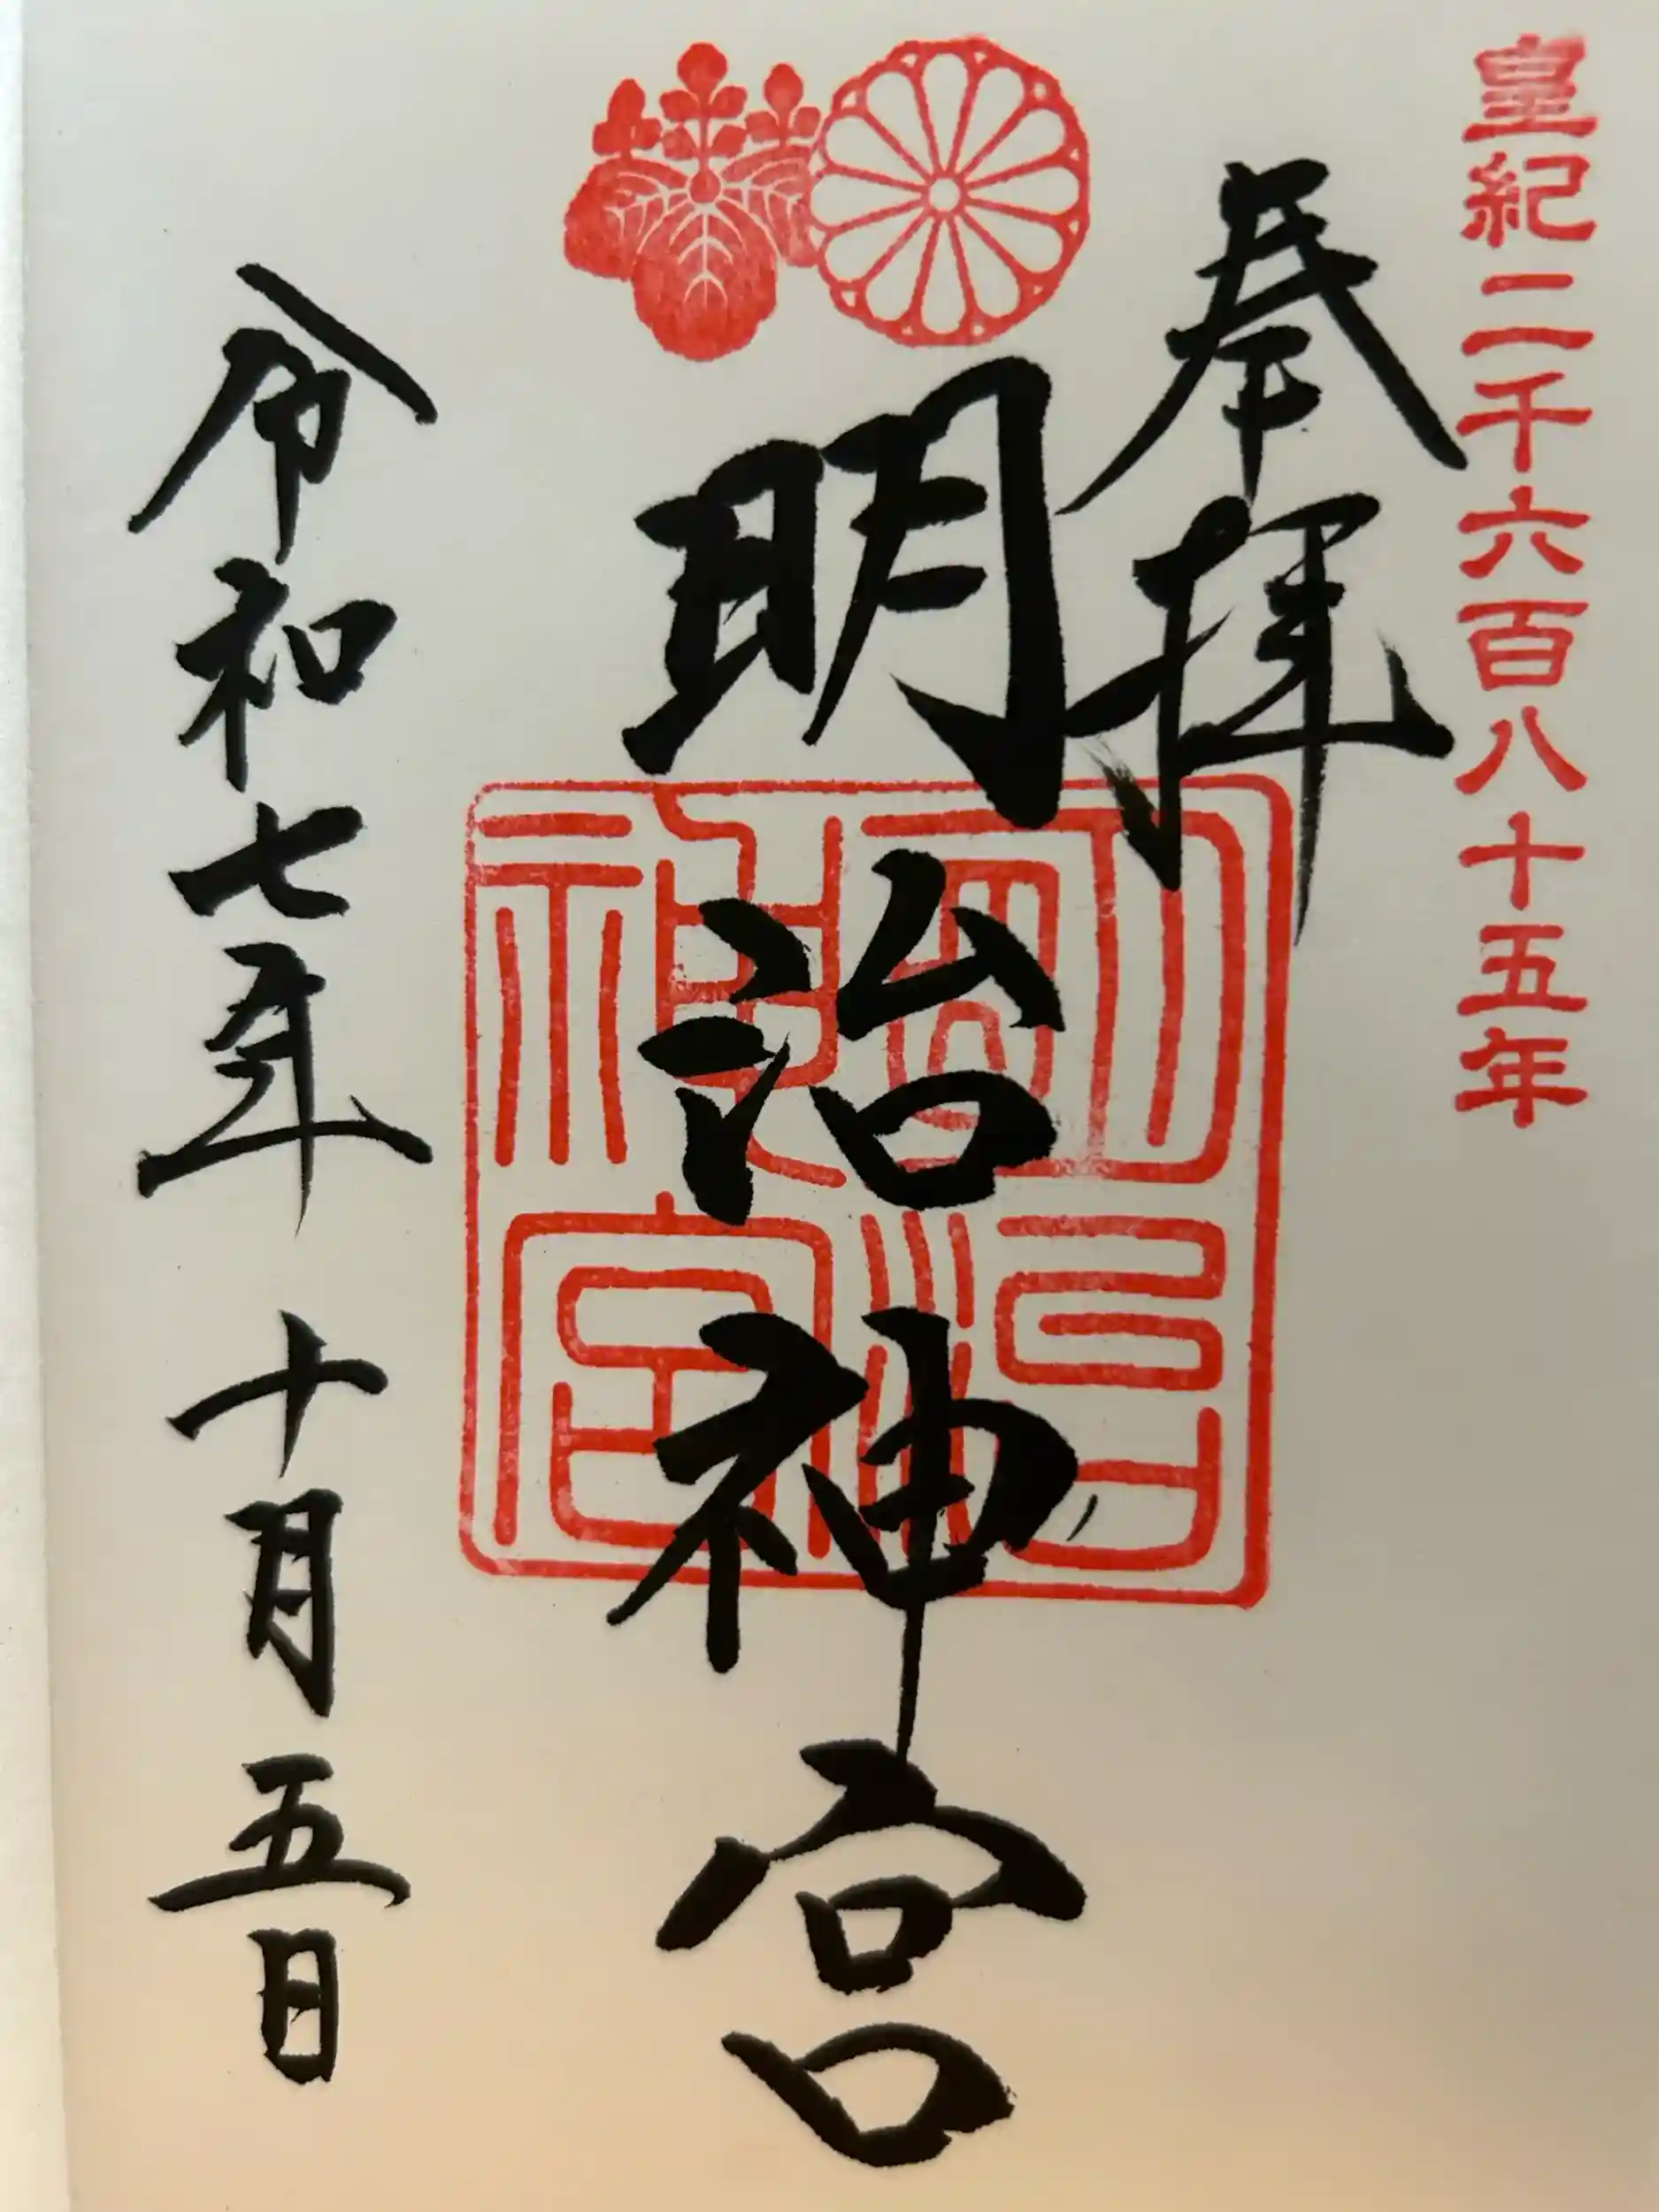 皇紀二千六百八十五年
奉拝
明治神宮
明治神宮
令和七年 十月五日